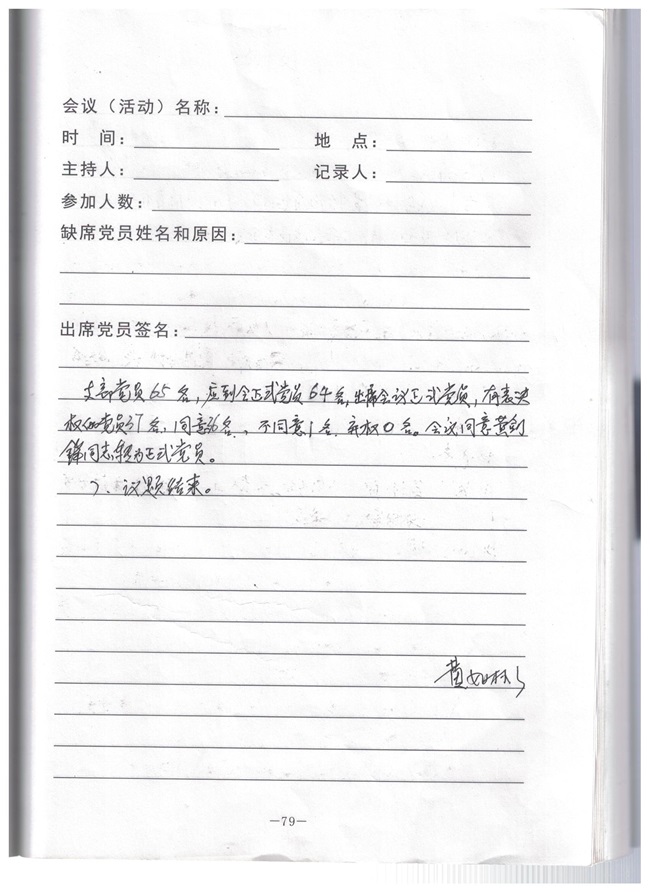 会议（活动）名称：
时　间：　　　　地　点：
主持人：　　　　记录人：
参加人数：
缺席党员姓名和原因：
出席党员签名：
支部党员65名，应到会正式党员64名，出席会议正式党员，有表决
权的党员37名，同意36名、不同意1名，弃权0名。会议同意黄
锋同志转为正式党员。
7、议题结束。
黄如林
—79—